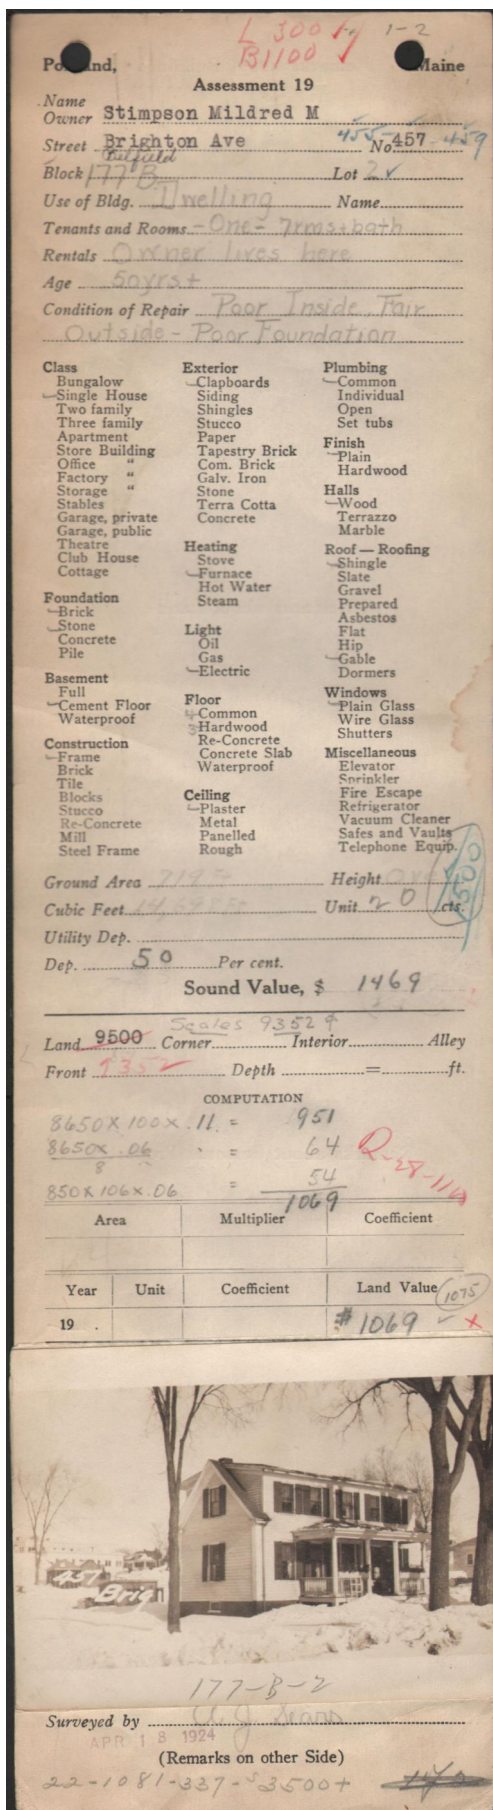 L 300 1-2
B1100
Portland, Maine
Assessment 19
Name
Owner Stimpson Mildred M
Street Brighton Ave 455- No 457 -459
Belfield
Block 177 B Lot 2
Use of Bldg. Dwelling Name
Tenants and Rooms -One- 7rms+bath
Rentals Owner lives here
Age 50yrs+
Condition of Repair Poor Inside, Fair
Outside - Poor Foundation
Class
Bungalow
Single House
Two family
Three family
Apartment
Store Building
Office "
Factory "
Storage "
Stables
Garage, private
Garage, public
Theatre
Club House
Cottage
Foundation
Brick
Stone
Concrete
Pile
Basement
Full
Cement Floor
Waterproof
Construction
Frame
Brick
Tile
Blocks
Stucco
Re-Concrete
Mill
Steel Frame
Exterior
Clapboards
Siding
Shingles
Stucco
Paper
Tapestry Brick
Com. Brick
Galv. Iron
Stone
Terra Cotta
Concrete
Heating
Stove
Furnace
Hot Water
Steam
Light
Oil
Gas
Electric
Floor
4 Common
3 Hardwood
Re-Concrete
Concrete Slab
Waterproof
Ceiling
Plaster
Metal
Panelled
Rough
Plumbing
Common
Individual
Open
Set tubs
Finish
Plain
Hardwood
Halls
Wood
Terrazzo
Marble
Roof — Roofing
Shingle
Slate
Gravel
Prepared
Asbestos
Flat
Hip
Gable
Dormers
Windows
Plain Glass
Wire Glass
Shutters
Miscellaneous
Elevator
Sprinkler
Fire Escape
Refrigerator
Vacuum Cleaner
Safes and Vaults
Telephone Equip.
1500
Ground Area 719 Height
Cubic Feet Unit 20 cts.
Utility Dep.
Dep. 50 Per cent.
Sound Value, $ 1469
Scales 9352
Land 9500 Corner Interior Alley
Front 9352 Depth = ft.
COMPUTATION
8650 X 100 X .11 = 951
8650 X .06 = 64
8
850 X 106 X .06 = 54
1069
Area Multiplier Coefficient
Year Unit Coefficient Land Value 1075
19 . $1069 X
457
Brig
177-B-2
Surveyed by A. J. Sears
APR 18 1924
(Remarks on other Side)
22-1081-337-$3500+